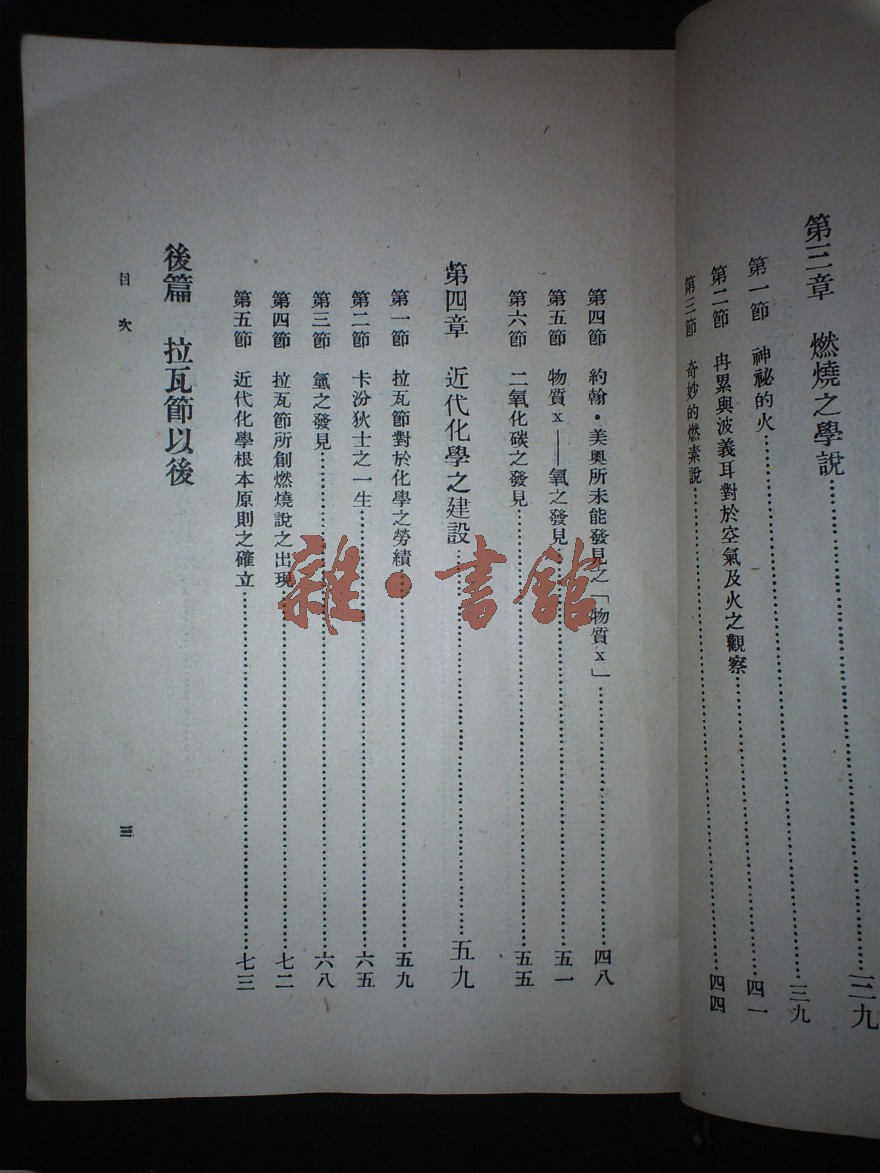 第三章 燃燒之學說……三九
第一節 神祕的火……三九
第二節 冉累與波義耳對於空氣及火之觀察……四一
第三節 奇妙的燃素說……四四
第四節 約翰·美奧所未能發見之「物質x」……四八
第五節 物質x——氧之發見……五一
第六節 二氧化碳之發見……五五
第四章 近代化學之建設……五九
第一節 拉瓦節對於化學之勞績……五九
第二節 卡汾狄士之一生……六五
第三節 氫之發見……六八
第四節 拉瓦節所創燃燒說之出現……七二
第五節 近代化學根本原則之確立……七三
後篇 拉瓦節以後
目次
三
雜·書館